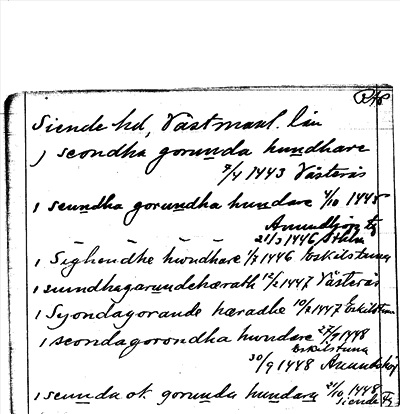 Siende hd, Västmanl. län
) scondha gorunda hundhare
7/4 1443 Västerås
, scundha gorundha hundare 4/10 1445
21/3 1446 Sthlm
, Sighendhe hwndhare 1/7 1446 Eskilstuna
, sundhagarundehærath 12/2 1447 Västerås
, Syondagorande hæradhe 10/2 1447 Eskilstuna
, scondagorondha hundare 27/9 1448
Eskilstuna
30/9 1448
, scunda ok gorunda hundara 21/10 1448
Siende Fj